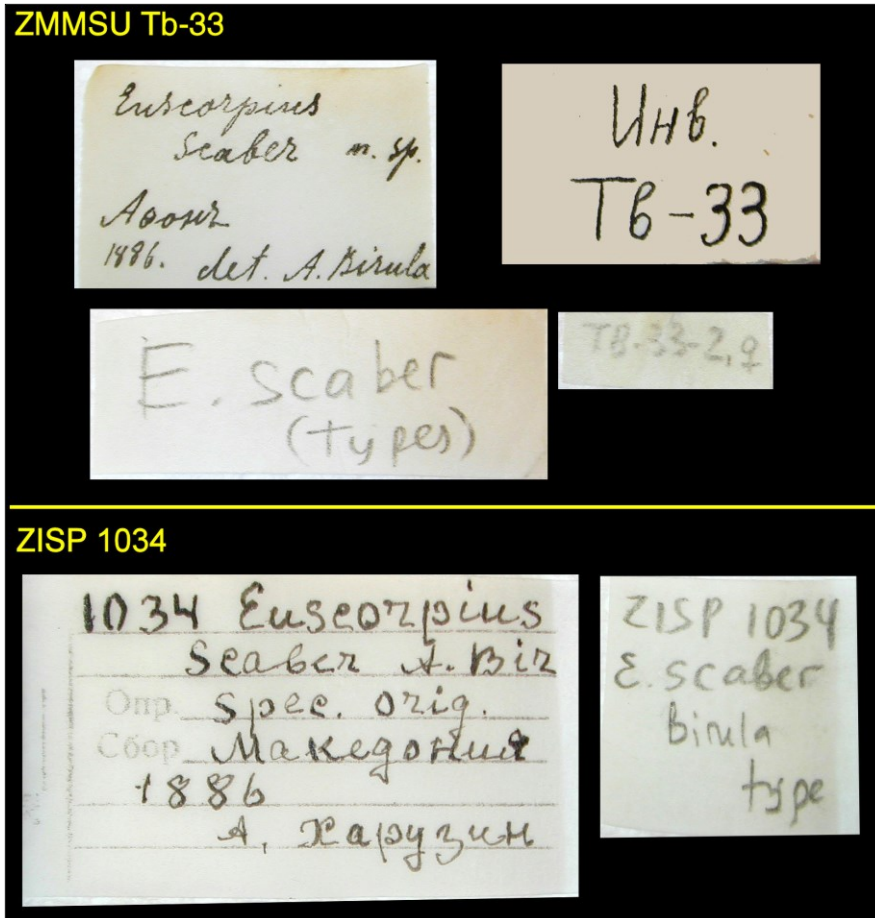 ZMMSU Tb-33
Euscorpius
Scaber n. sp.
Аѳонъ
1886. det. A. Birula
Инв.
Тв-33
E. scaber
(types)
Тв-33-2,♀
ZISP 1034
1034 Euscorpius
Scaber A. Bir
Опр. Spec. orig.
Сбор Македония
1886
А, Харузин
ZISP 1034
E. scaber
Birula
type